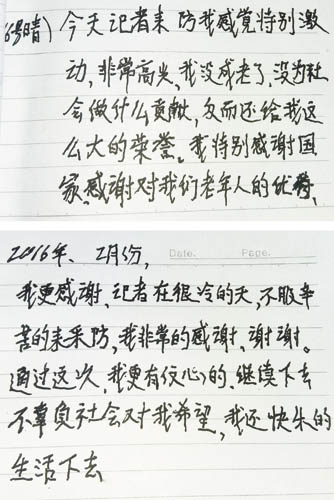 6号晴）今天记者来防我感觉特别激
动，非常高兴，我没成老了，没为社
会做什么贡献，反而还给我这
么大的荣誉。我特别感谢国
家，感谢对我们老年人的优待、
2016年、2月份，
Date.
Page.
我更感谢、记者在很冷的天，不服辛
苦的来采防，我非常的感谢、谢谢。
通过这次，我更有仪心的、继续下去
不辜负社会对我希望，我还快乐的
生活下去